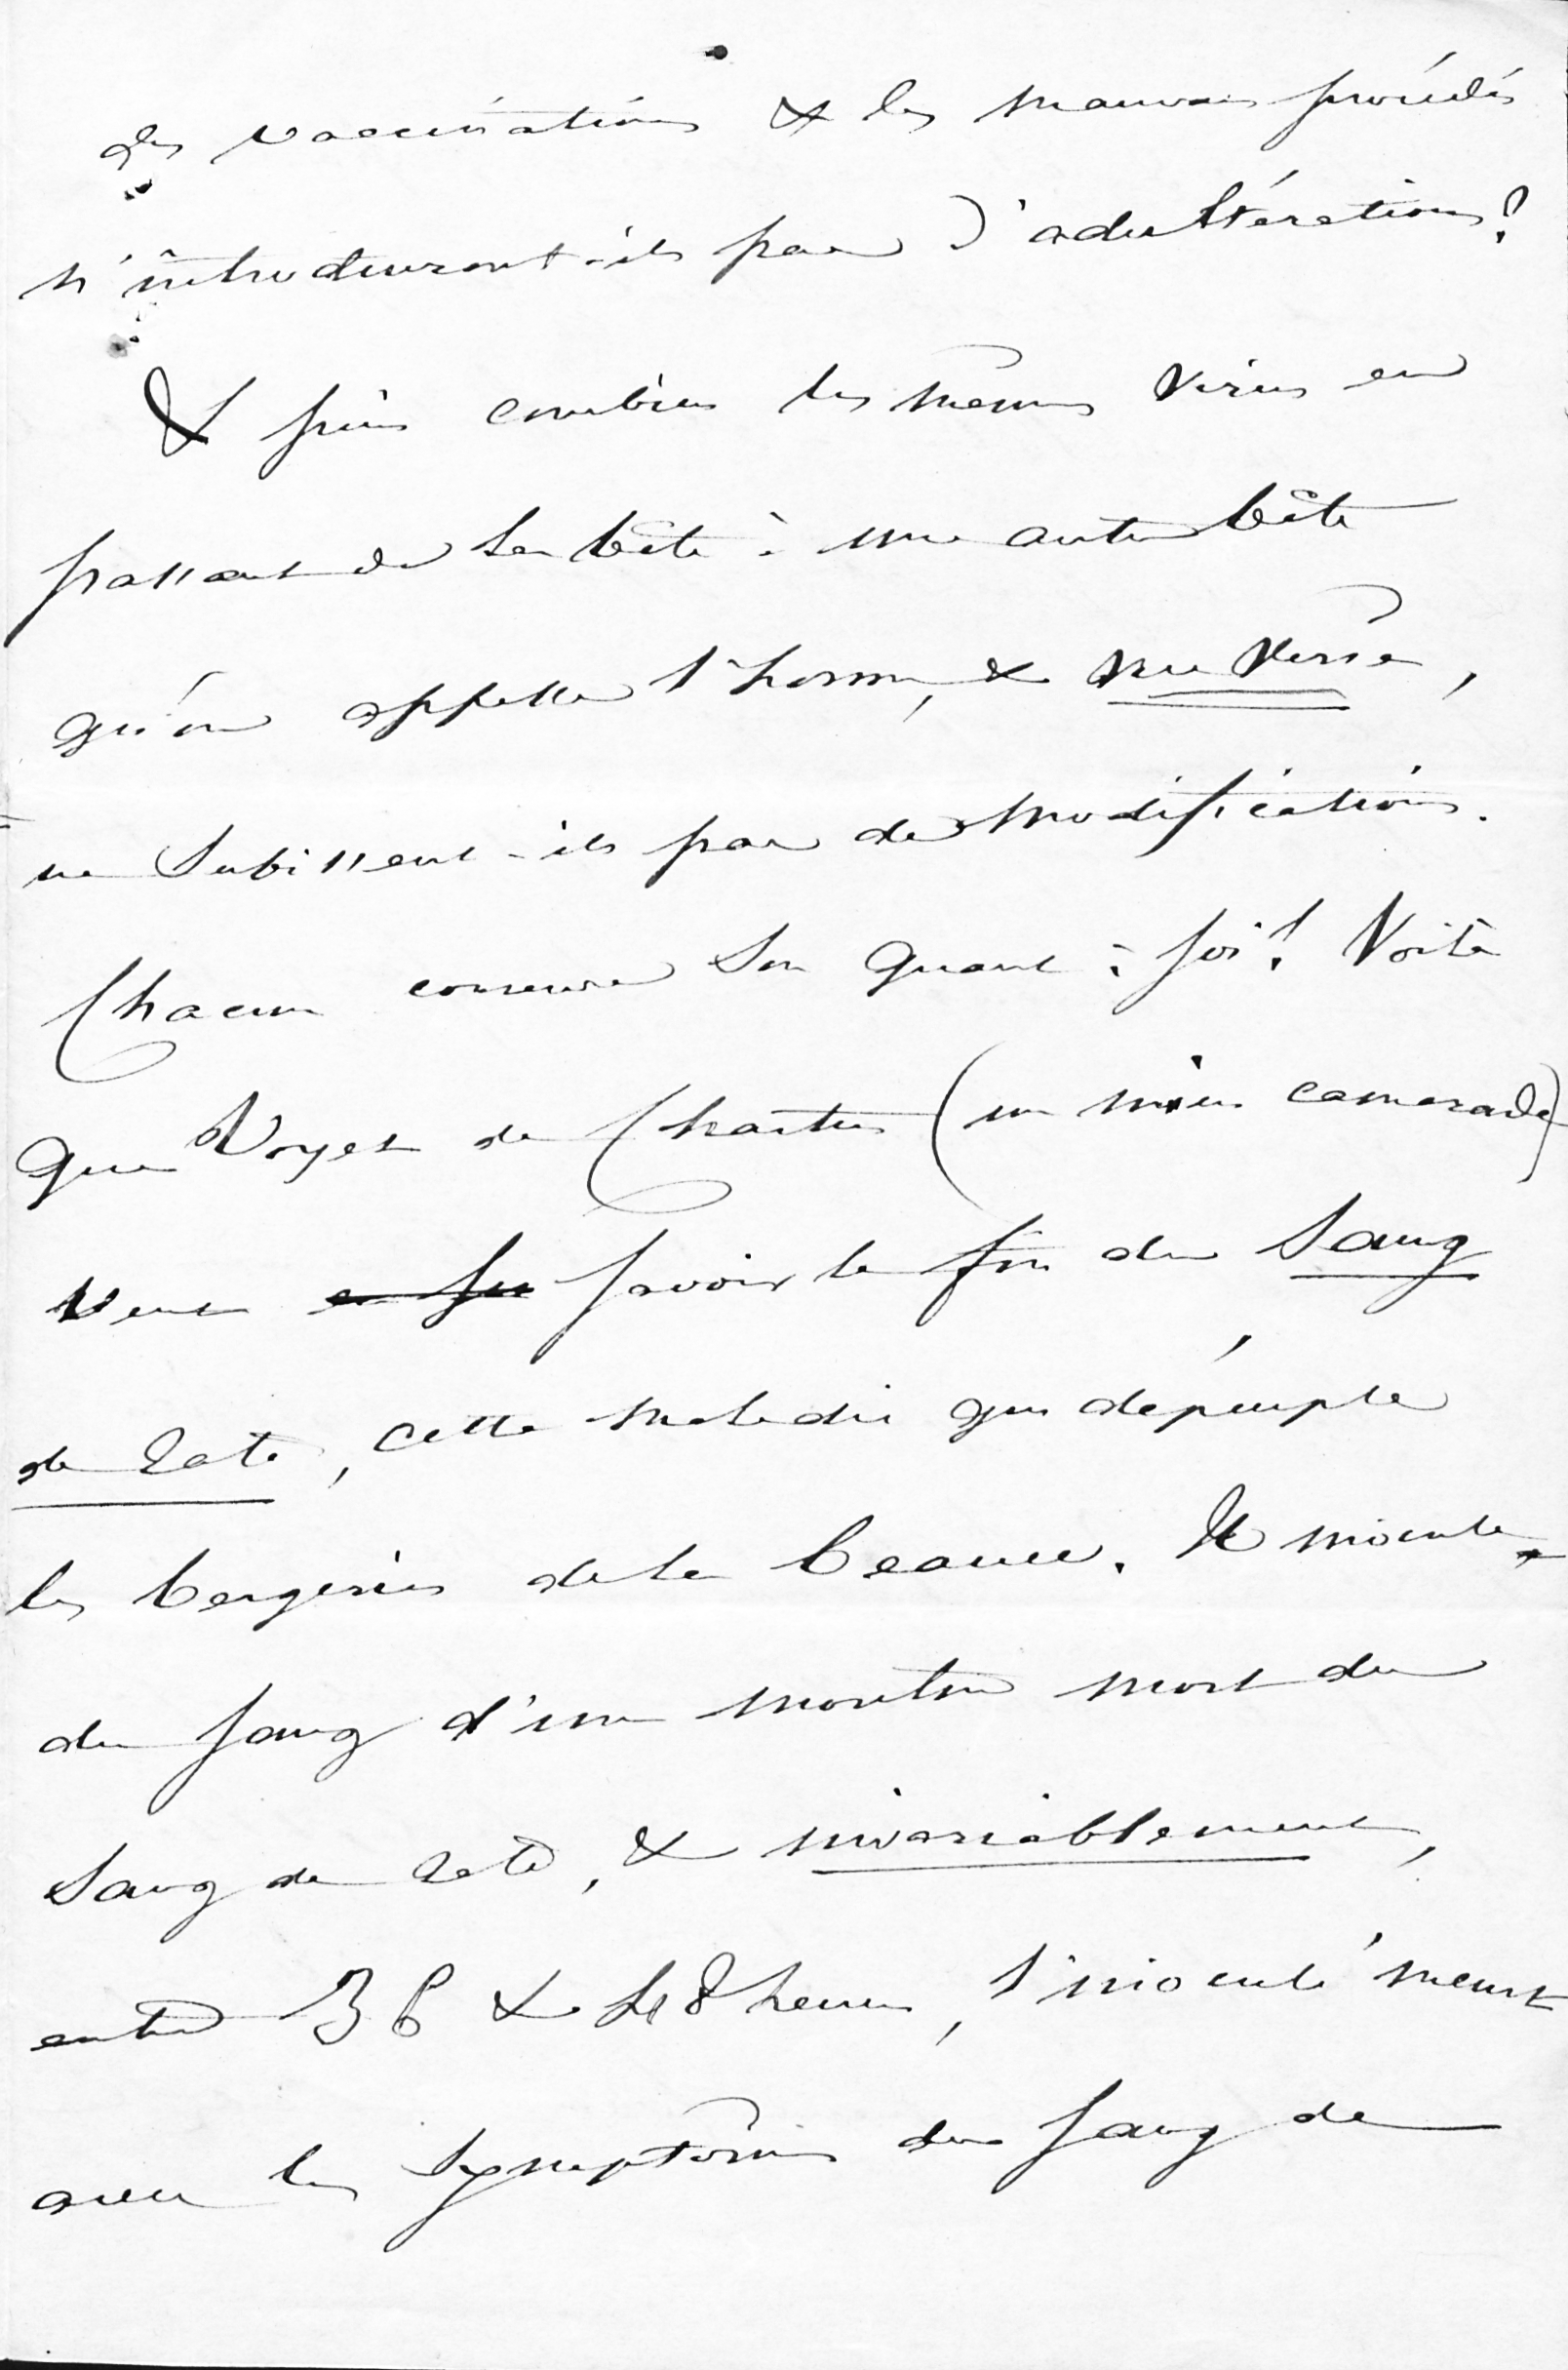 des vaccinations & les mauvais procédés
n'introduiront-ils pas d'adultérations?
& puis combien les mêmes virus en
passant de la bête à une autre bête
qu'on appelle l'homme, & vice versa,
ne subissent-ils pas de modifications.
Chacun conserve son quant à soi! Voilà
que Voyet de Chartres (un mien camarade)
veut savoir le fin du Sang
de Rate, cette maladie qui dépeuple
les bergeries de la Beauce. Il inocule
du sang d'un mouton mort du
Sang de Rate, & invariablement,
entre 36 & 48 heures, l'inoculé meurt
avec les symptômes du sang de